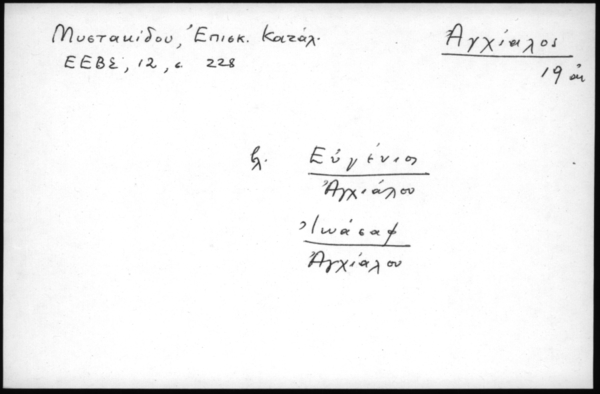 Μυστακίδου, Ἐπισκ. Κατάλ.
ΕΕΒΣ, 12, σ 228
Ἀγχίαλος
19 αι
βλ. Εὐγένιος
Ἀγχιάλου
Ἰωάσαφ
Ἀγχίαλου